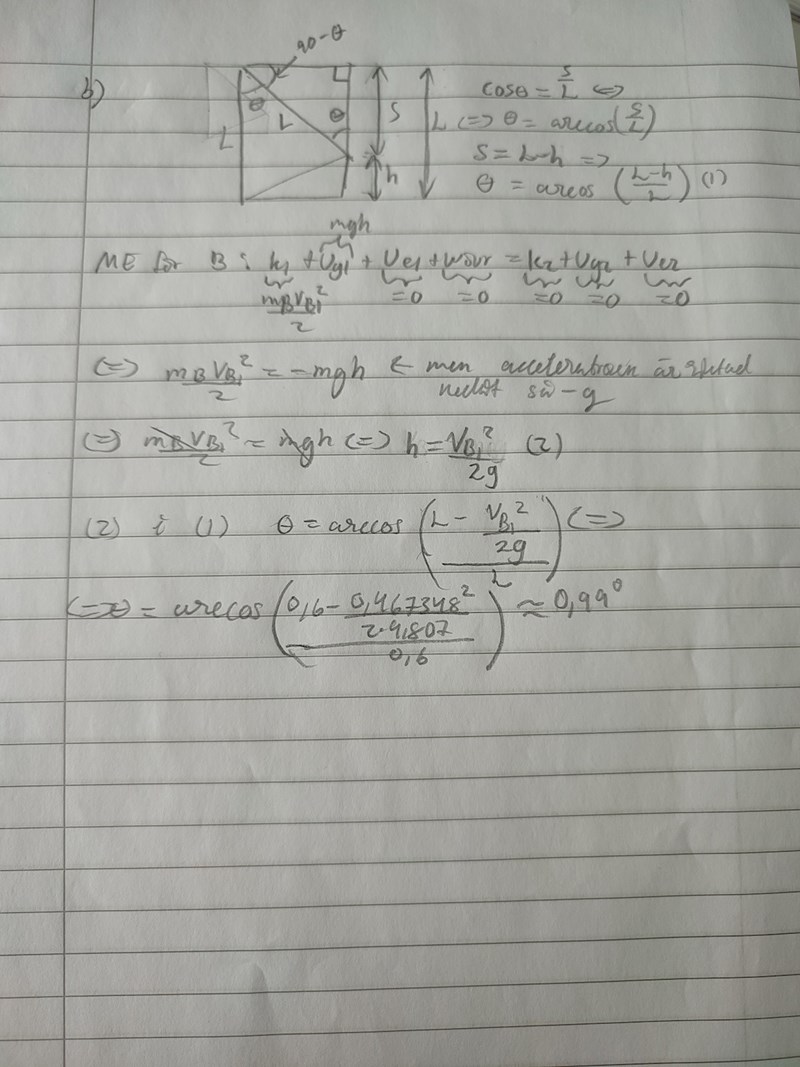 b)
90-θ
θ
L
L
θ
S
h
L
cosθ = S/L <=>
<=> θ = arccos(S/L)
S = L-h =>
θ = arccos (L-h/L) (1)
mgh
ME för B : k1 + Ug1 + Ue1 + Wövr = k2 + Ug2 + Ue2
mBVB1²/2 =0 =0 =0 =0 =0
<=> mBVB1²/2 = -mgh ← men accelerationen är riktad
nedåt så -g
<=> mBVB1²/2 = mgh <=> h = VB1²/2g (2)
(2) i (1) θ = arccos (L - VB1²/2g / L) <=>
<=> θ = arccos (0,6 - 0,467348²/2·9,807 / 0,6) ≈ 0,99°